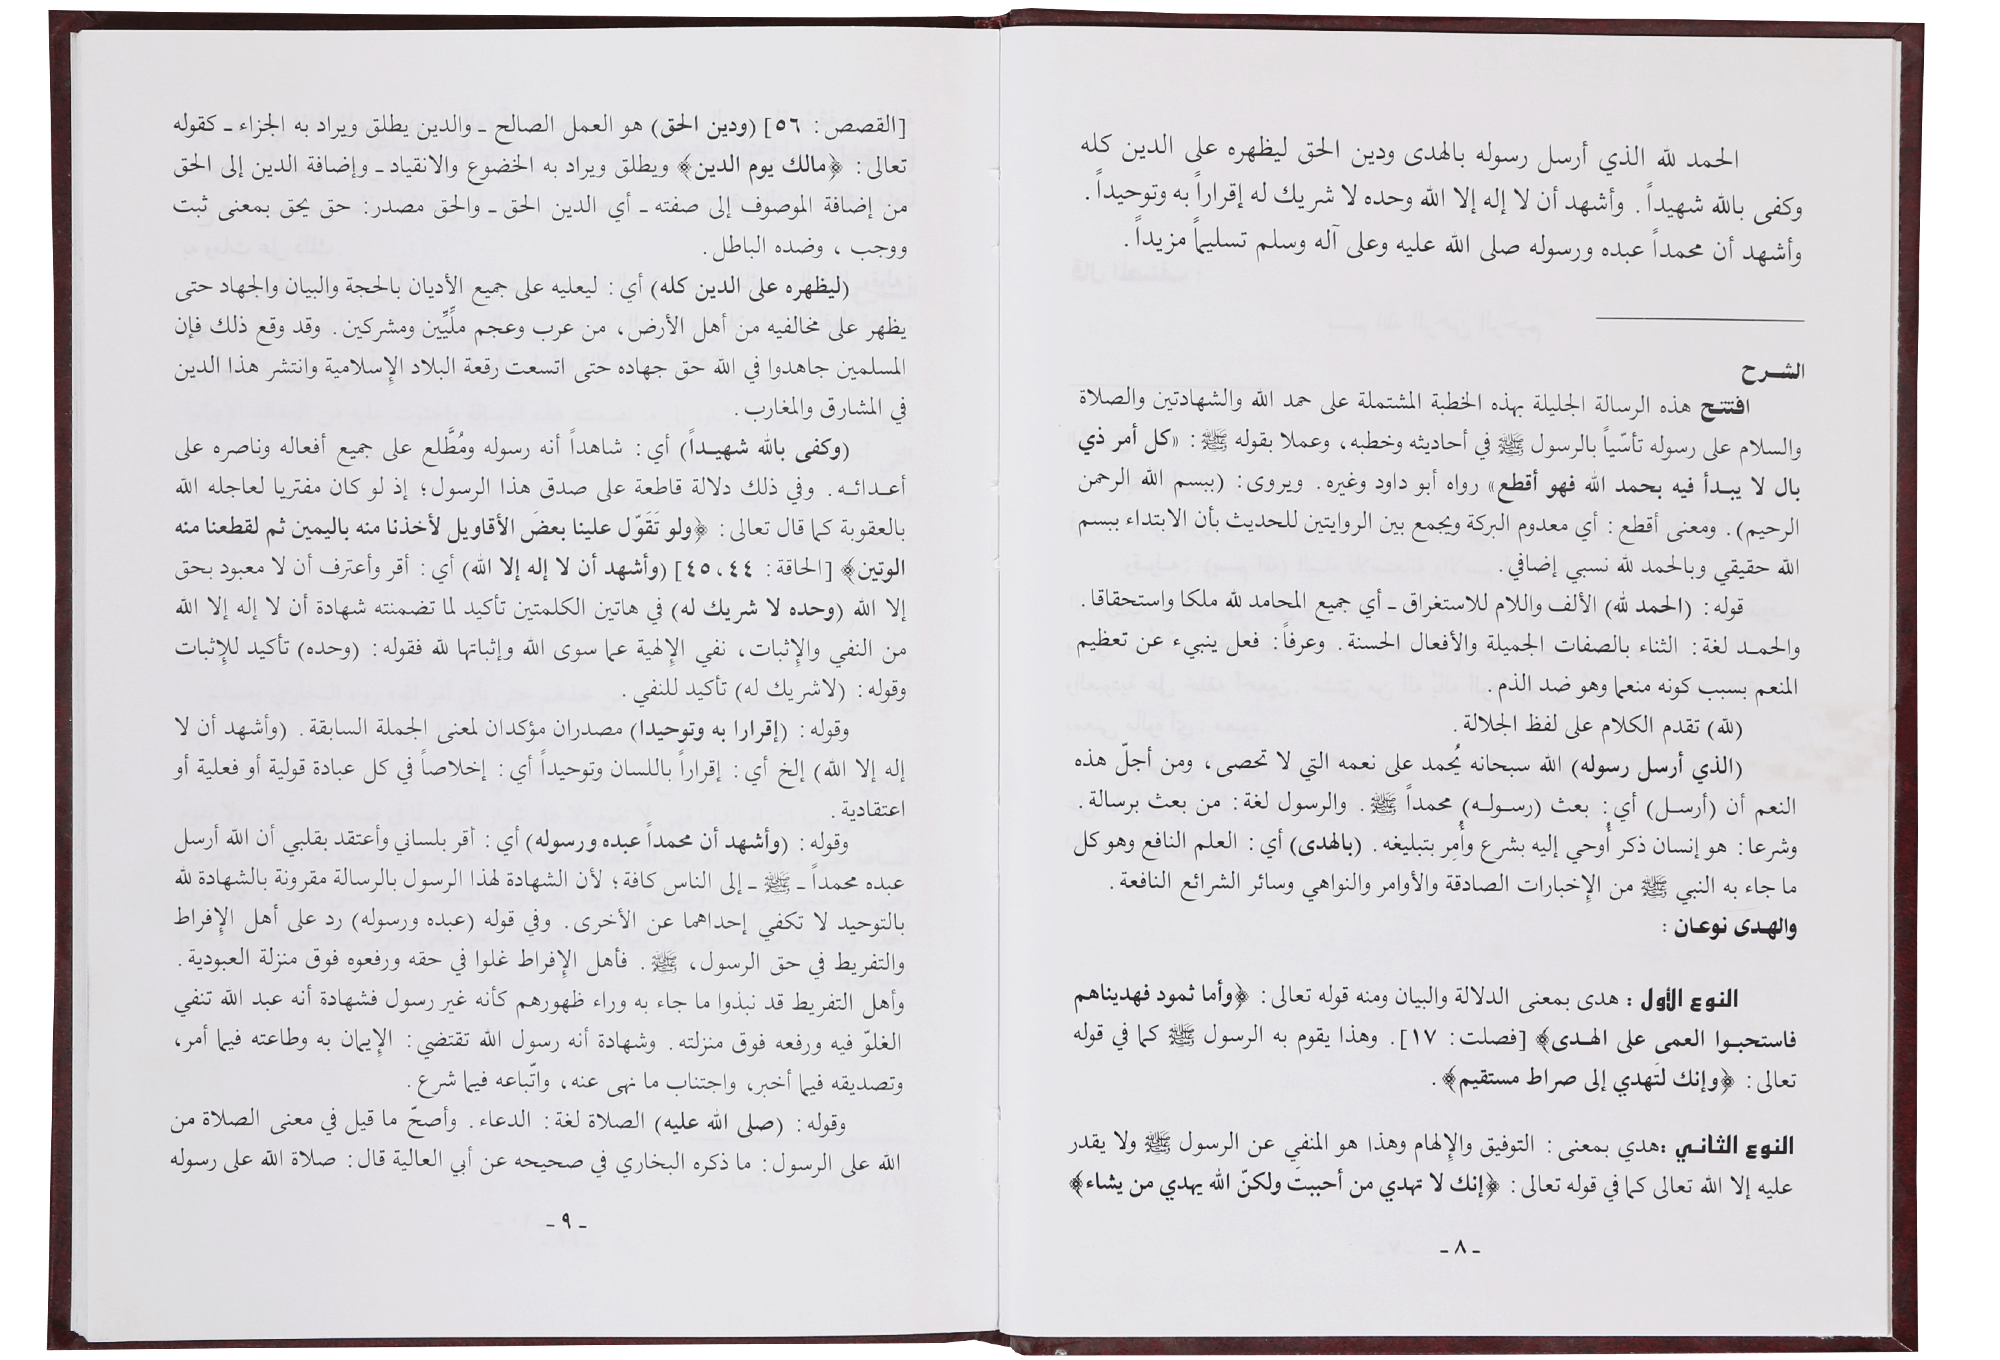 الحمد لله الذي أرسل رسوله بالهدى ودين الحق ليظهره على الدين كله
وكفى بالله شهيداً. وأشهد أن لا إله إلا الله وحده لا شريك له إقراراً به وتوحيداً.
وأشهد أن محمداً عبده ورسوله صلى الله عليه وعلى آله وسلم تسليماً مزيداً.
الشـــرح
افتتـح هذه الرسالة الجليلة بهذه الخطبة المشتملة على حمد الله والشهادتين والصلاة
والسلام على رسوله تأسّياً بالرسول ﷺ في أحاديثه وخطبه، وعملا بقوله ﷺ: «كل أمر ذي
بال لا يبـدأ فيه بحمد الله فهو أقطع» رواه أبو داود وغيره. ويروى: (ببسم الله الرحمن
الرحيم). ومعنى أقطع: أي معدوم البركة ويجمع بين الروايتين للحديث بأن الابتداء ببسم
الله حقيقي وبالحمد لله نسبي إضافي.
قوله: (الحمد لله) الألف واللام للاستغراق ـ أي جميع المحامد لله ملكا واستحقاقا.
والحمـد لغة: الثناء بالصفات الجميلة والأفعال الحسنة. وعرفاً: فعل ينبيء عن تعظيم
المنعم بسبب كونه منعما وهو ضد الذم.
(لله) تقدم الكلام على لفظ الجلالة.
(الذي أرسل رسوله) الله سبحانه يُحمد على نعمه التي لا تحصى، ومن أجلّ هذه
النعم أن (أرسـل) أي: بعث (رسـولـه) محمداً ﷺ. والرسول لغة: من بعث برسالة.
وشرعا: هو إنسان ذكر أُوحي إليه بشرع وأُمِر بتبليغه. (بالهدى) أي: العلم النافع وهو كل
ما جاء به النبي ﷺ من الإخبارات الصادقة والأوامر والنواهي وسائر الشرائع النافعة.
والهـدى نوعـان:
النوع الأول: هدى بمعنى الدلالة والبيان ومنه قوله تعالى: ﴿وأما ثمود فهديناهم
فاستحبـوا العمى على الهـدى﴾ [فصلت: ١٧]. وهذا يقوم به الرسول ﷺ كما في قوله
تعالى: ﴿وإنك لَتَهدي إلى صراط مستقيم﴾.
النوع الثانـي: هدي بمعنى: التوفيق والإلهام وهذا هو المنفي عن الرسول ﷺ ولا يقدر
عليه إلا الله تعالى كما في قوله تعالى: ﴿إنك لا تهدي من أحببتَ ولكنّ الله يهدي من يشاء﴾
ـ ٨ ـ
[القصص: ٥٦] (ودين الحق) هو العمل الصالح ـ والدين يطلق ويراد به الجزاء ـ كقوله
تعالى: ﴿مالك يوم الدين﴾ ويطلق ويراد به الخضوع والانقياد ـ وإضافة الدين إلى الحق
من إضافة الموصوف إلى صفته ـ أي الدين الحق ـ والحق مصدر: حق يحق بمعنى ثبت
ووجب، وضده الباطل.
(ليظهره على الدين كله) أي: ليعليه على جميع الأديان بالحجة والبيان والجهاد حتى
يظهر على مخالفيه من أهل الأرض، من عرب وعجم ملِّيِّين ومشركين. وقد وقع ذلك فإن
المسلمين جاهدوا في الله حق جهاده حتى اتسعت رقعة البلاد الإسلامية وانتشر هذا الدين
في المشارق والمغارب.
(وكفى بالله شهيـداً) أي: شاهداً أنه رسوله ومُطَّلع على جميع أفعاله وناصره على
أعـدائـه. وفي ذلك دلالة قاطعة على صدق هذا الرسول؛ إذ لو كان مفتريا لعاجله الله
بالعقوبة كما قال تعالى: ﴿ولو تَقَوّل علينا بعضَ الأقاويل لأخذنا منه باليمين ثم لقطعنا منه
الوتين﴾ [الحاقة: ٤٤، ٤٥] (وأشهد أن لا إله إلا الله) أي: أقر وأعترف أن لا معبود بحق
إلا الله (وحده لا شريك له) في هاتين الكلمتين تأكيد لما تضمنته شهادة أن لا إله إلا الله
من النفي والإثبات، نفي الإلهية عما سوى الله وإثباتها لله فقوله: (وحده) تأكيد للإثبات
وقوله: (لاشريك له) تأكيد للنفي.
وقوله: (إقرارا به وتوحيدا) مصدران مؤكدان لمعنى الجملة السابقة. (وأشهد أن لا
إله إلا الله) إلخ أي: إقراراً باللسان وتوحيداً أي: إخلاصاً في كل عبادة قولية أو فعلية أو
اعتقادية.
وقوله: (وأشهد أن محمداً عبده ورسوله) أي: أقر بلساني وأعتقد بقلبي أن الله أرسل
عبده محمداً ـ ﷺ ـ إلى الناس كافة؛ لأن الشهادة لهذا الرسول بالرسالة مقرونة بالشهادة لله
بالتوحيد لا تكفي إحداهما عن الأخرى. وفي قوله (عبده ورسوله) رد على أهل الإفراط
والتفريط في حق الرسول، ﷺ. فأهل الإفراط غلوا في حقه ورفعوه فوق منزلة العبودية.
وأهل التفريط قد نبذوا ما جاء به وراء ظهورهم كأنه غير رسول فشهادة أنه عبد الله تنفي
الغلوّ فيه ورفعه فوق منزلته. وشهادة أنه رسول الله تقتضي: الإيمان به وطاعته فيما أمر،
وتصديقه فيما أخبر، واجتناب ما نهى عنه، واتّباعه فيما شرع.
وقوله: (صلى الله عليه) الصلاة لغة: الدعاء. وأصحّ ما قيل في معنى الصلاة من
الله على الرسول: ما ذكره البخاري في صحيحه عن أبي العالية قال: صلاة الله على رسوله
ـ ٩ ـ